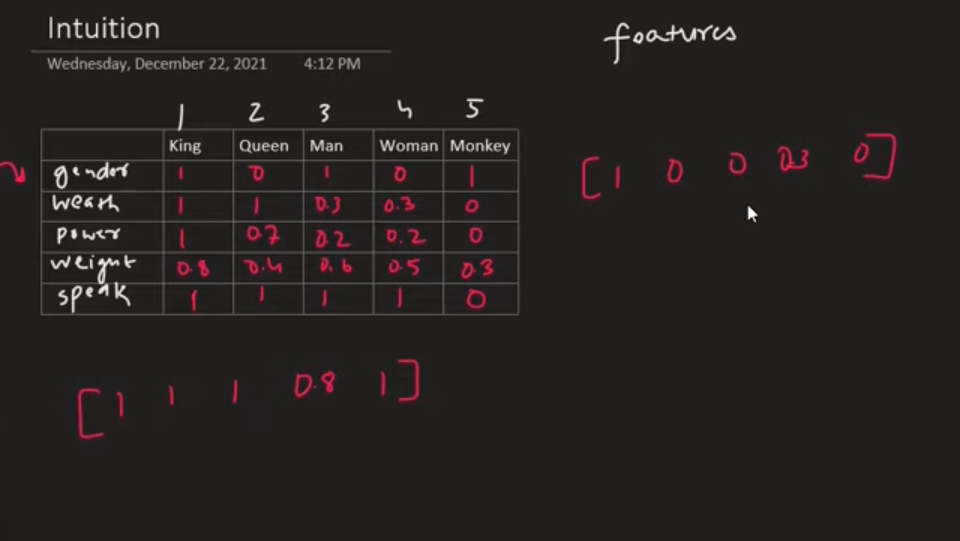 Intuition
features
Wednesday, December 22, 2021 4:12 PM
1 2 3 4 5
King Queen Man Woman Monkey
gender 1 0 1 0 1
weath 1 1 0.3 0.3 0
power 1 0.7 0.2 0.2 0
weight 0.8 0.4 0.6 0.5 0.3
speak 1 1 1 1 0
[1 0 0 0.3 0]
[1 1 1 0.8 1]